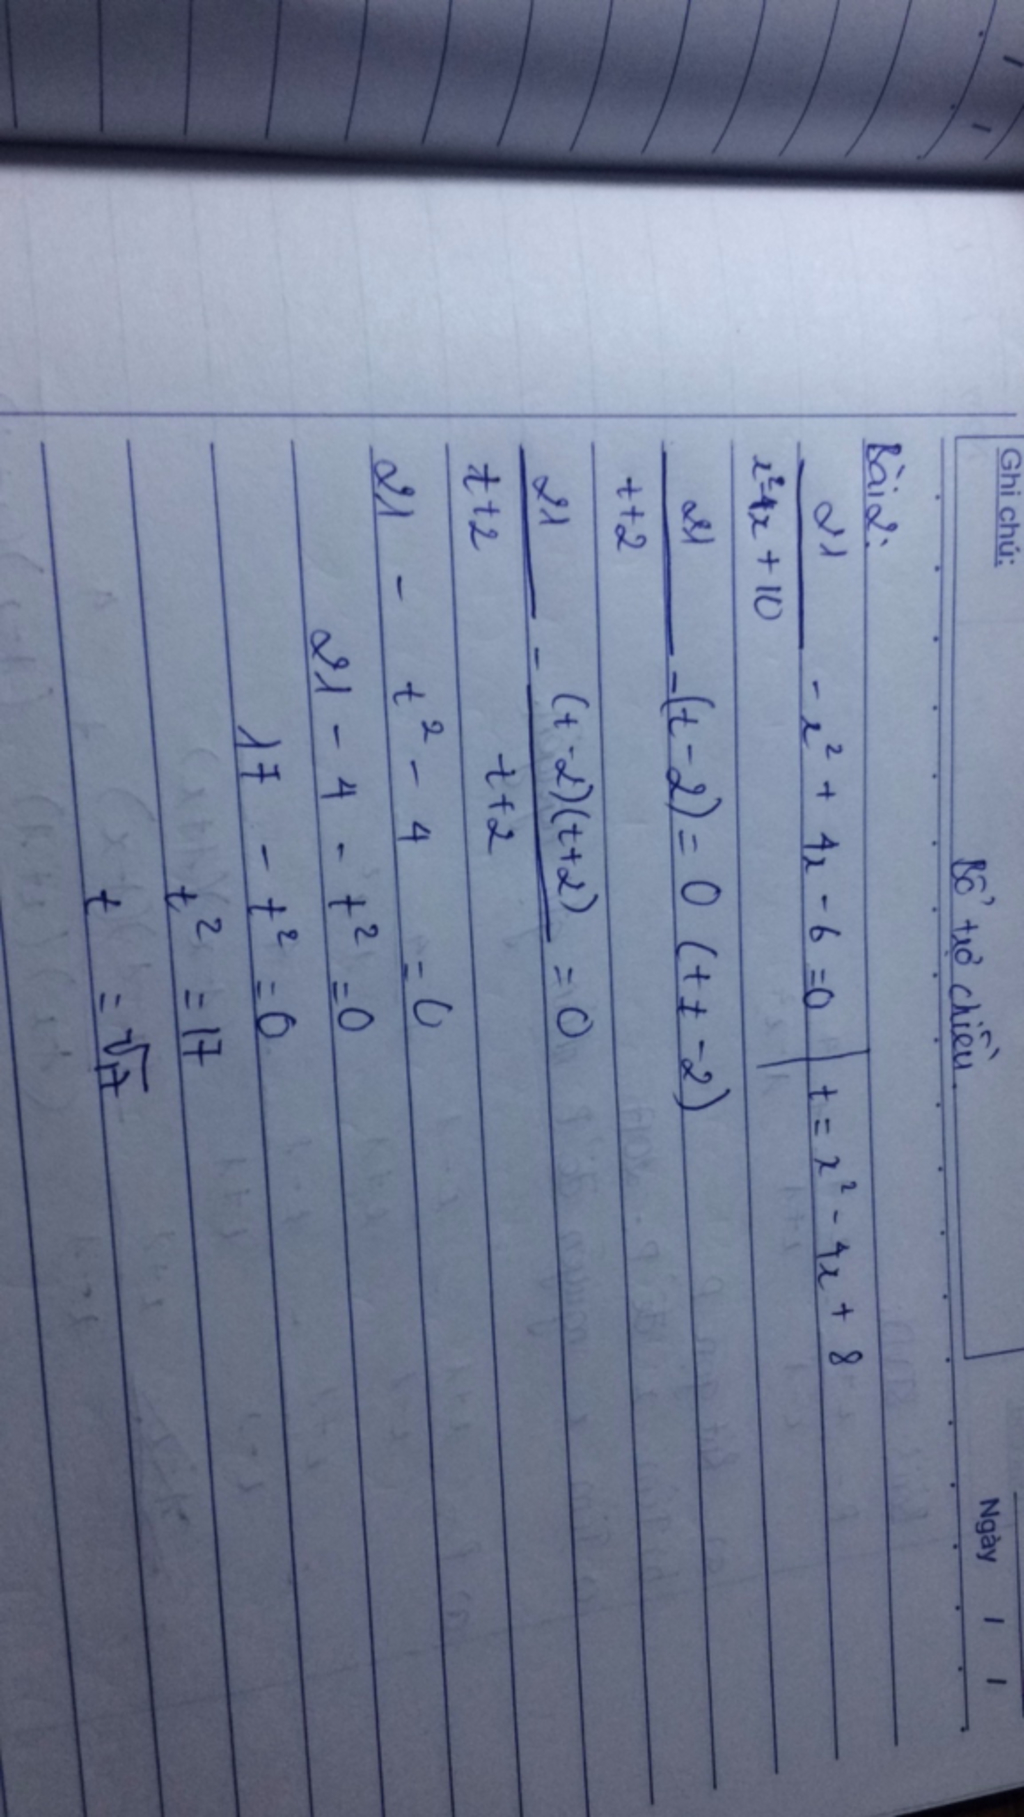 Ghi chú:
Ngày / /
Bổ trợ chiều
Bài 2:
21/(x²-4x+10) - x² + 4x - 6 = 0 | t = x² - 4x + 8
21/(t+2) - (t-2) = 0 (t≠-2)
21/(t+2) - (t-2)(t+2)/(t+2) = 0
21 - t² - 4 = 0
21 - 4 - t² = 0
17 - t² = 0
t² = 17
t = √17